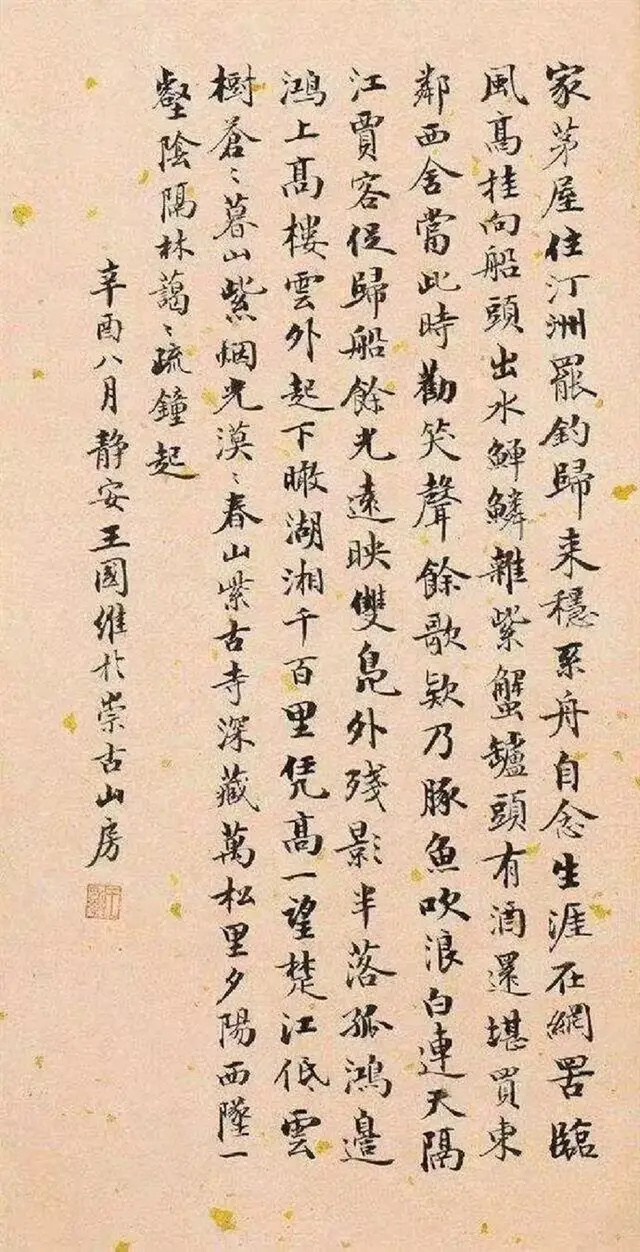 家茅屋住汀洲罷釣歸来穩系舟自念生涯在網罟臨
風高挂向船頭出水鮮鱗雜紫蟹罏頭有酒還堪買東
鄰西舍當此時勸笑聲餘歌欵乃豚魚吹浪白連天隔
江賈客促歸船餘光遠映雙鳧外残影半落孤鴻邉
鴻上髙樓雲外起下瞰湖湘千百里凭髙一望楚江低雲
樹蒼〻暮山紫烟光漠〻春山紫古寺深藏萬松里夕陽西墜一
壑陰隔林藹〻疏鐘起
辛酉八月靜安王國維於崇古山房